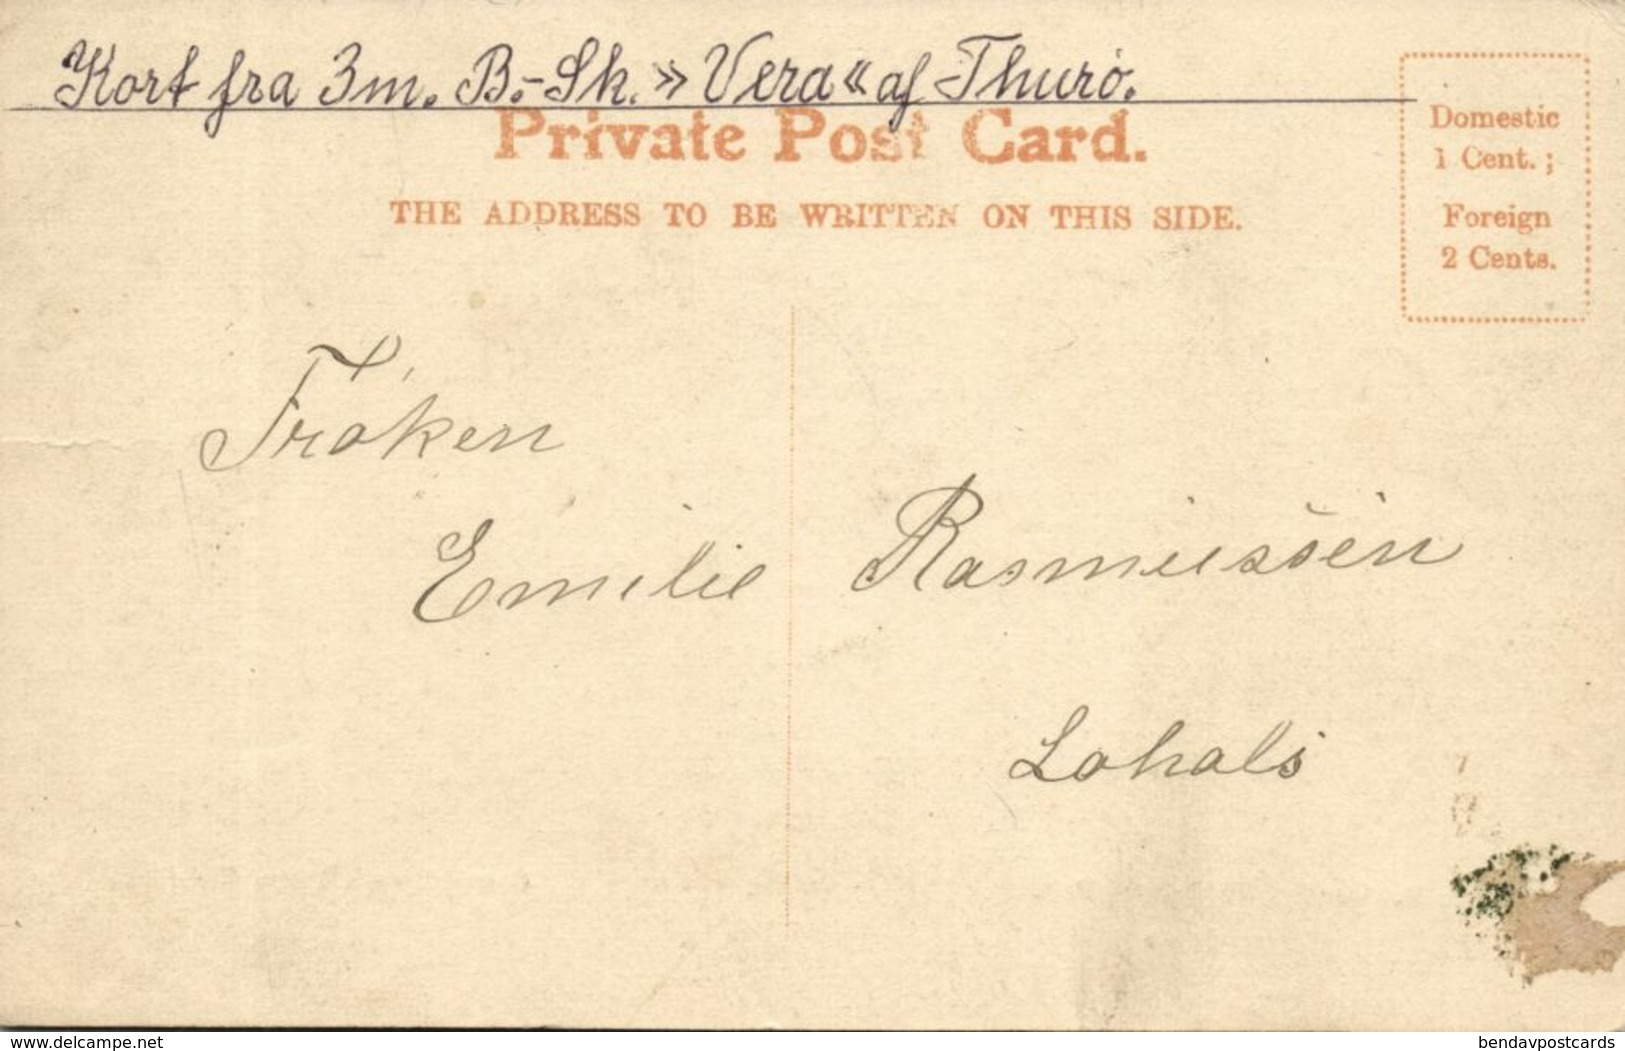 Kort fra 3m. B.-Sk. »Vera« af Thurö.
Private Post Card.
THE ADDRESS TO BE WRITTEN ON THIS SIDE.
Domestic
1 Cent. ;
Foreign
2 Cents.
Frøken
Emilie Rasmussen
Lohals
delcampe.net
bendavpostcards